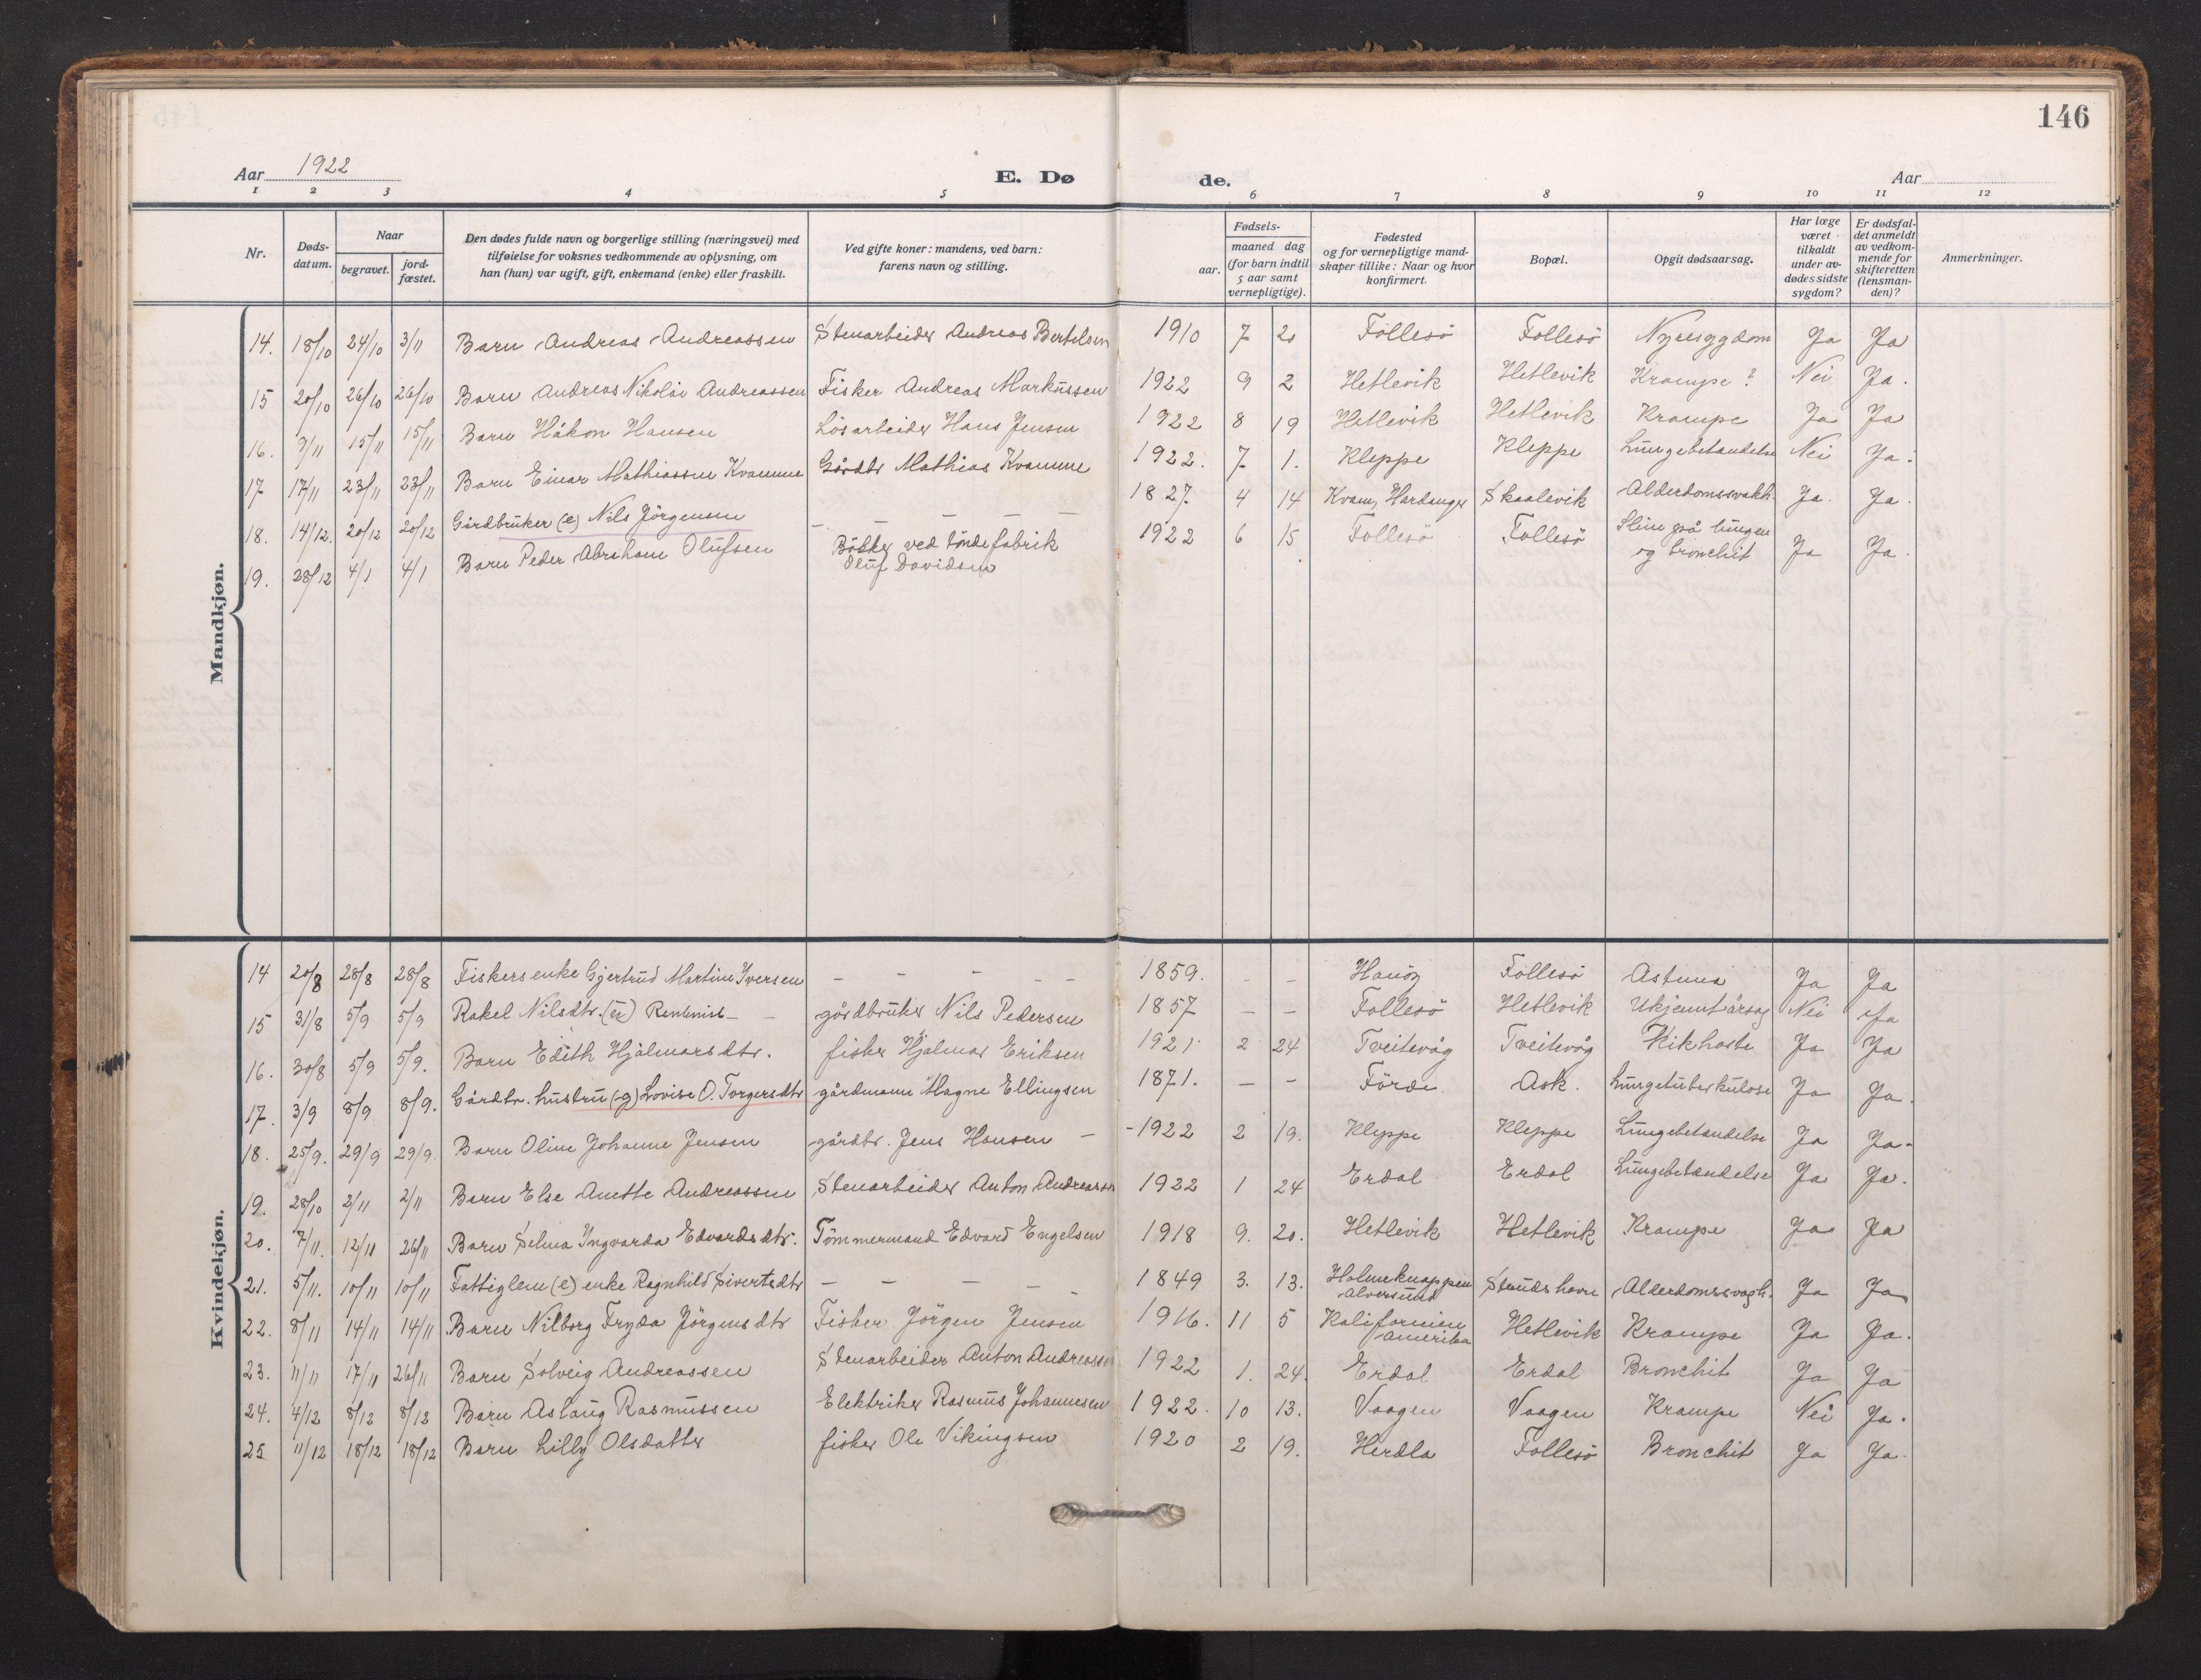 146
Aar 1922
E. Dø de.
Aar
1 2 3 4 5 6 7 8 9 10 11 12
Nr.
Døds-
datum.
Naar
begravet.
jord-
fæstet.
Den dødes fulde navn og borgerlige stilling (næringsvei) med
tilføielse for voksnes vedkommende av oplysning, om
han (hun) var ugift, gift, enkemand (enke) eller fraskilt.
Ved gifte koner: mandens, ved barn:
farens navn og stilling.
Fødsels-
aar.
maaned dag
(for barn indtil
5 aar samt
vernepligtige).
Fødested
og for vernepligtige mand-
skaper tillike: Naar og hvor
konfirmert.
Bopæl.
Opgit dødsaarsag.
Har læge
været
tilkaldt
under av-
dødes sidste
sygdom?
Er dødsfal-
det anmeldt
av vedkom-
mende for
skifteretten
(lensman-
den)?
Anmerkninger.
Mandkjøn.
14. 18/10 24/10 3/11 Barn Andreas Andreassen Stenarbeider Andreas Bertelsen 1910 7 20 Follesö Follesö Nyresygdom Ja Ja
15 20/10 26/10 26/10 Barn Andreas Nikolai Andreassen Fisker Andreas Markussen 1922 9 2 Hetlevik Hetlevik Krampe? Nei Ja.
16. 9/11 15/11 15/11 Barn Håkon Hansen Lösarbeider Hans Jensen 1922 8 19 Hetlevik Hetlevik Krampe Ja Ja
17 17/11 23/11 23/11 Barn Einar Mathiassen Kvamme Gårdbr Mathias Kvamme 1922. 7 1. Kleppe Kleppe Lungebetændelse Nei Ja.
18. 14/12. 20/12 20/12 Gårdbruker (e) Nils Jörgensen – – – – 1827. 4 14 Kvam, Hardanger Skaalevik Alderdomssvakh. Ja. Ja.
19. 28/12 4/1 4/1 Barn Peder Abraham Olufsen Bökker ved töndefabrik
Oluf Davidsen 1922 6 15 Follesö Follesö Slim på lungen
og bronchit Ja Ja.
Kvindekjøn.
14 20/8 28/8 28/8 Fiskersenke Gjertrud Martine Iversen – – – – – 1859. – – Hanöy Follesö Astma Ja Ja
15 31/8 5/9 5/9 Rakel Nilsdtr. (u) Rentenist – – gårdbruker Nils Pedersen 1857 – – Follesö Hetlevik Ukjemt årsag Nei Ja
16. 30/8 5/9 5/9. Barn Edith Hjalmarsdtr. fisker Hjalmar Eriksen 1921 2 24 Tveitevåg Tveitevåg Kikhoste Ja Ja
17. 3/9 8/9 8/9. Gårdbr. hustru (g) Lovise O. Torgersdtr gårdmann Magne Ellingsen 1871. – – Förde Ask. Lungetuberkulose Ja Ja.
18. 25/9. 29/9 29/9. Barn Oline Johanne Jensen gårdbr. Jens Hansen – – 1922 2 19. Kleppe Kleppe Lungebetændelse Ja Ja.
19. 28/10 2/11 2/11 Barn Else Anette Andreassen Stenarbeider Anton Andreassen 1922 1 24 Erdal Erdal Lungebetændelse Ja Ja.
20. 7/11. 12/11 26/11 Barn Selma Ingvarda Edvardsdtr. Tömmermand Edvard Engelsen 1918 9. 20. Hetlevik Hetlevik Krampe Ja Ja
21. 5/11. 10/11 10/11 Fattiglem (e) enke Ragnhild Sivertsdtr – – – – 1849 3. 13. Holmeknappen
Alversund Strudshavn Alderdomssvagh. Ja Ja
22. 8/11 14/11 14/11 Barn Nilborg Fryda Jörgensdtr Fisker Jörgen Jensen 1916. 11 5 Kalifornien
Amerika Hetlevik Krampe Ja Ja.
23. 11/11 17/11 26/11 Barn Solveig Andreassen Stenarbeider Anton Andreassen 1922 1. 24. Erdal Erdal Bronchit Ja Ja
24. 4/12 8/12 8/12 Barn Aslaug Rasmussen Elektriker Rasmus Johannesen 1922. 10 13. Vaagen Vaagen Krampe Nei Ja.
25 11/12 18/12 18/12 Barn Lilly Olsdatter fisker Ole Vikingsen 1920 2 19. Herdla Follesö Bronchit Ja Ja.